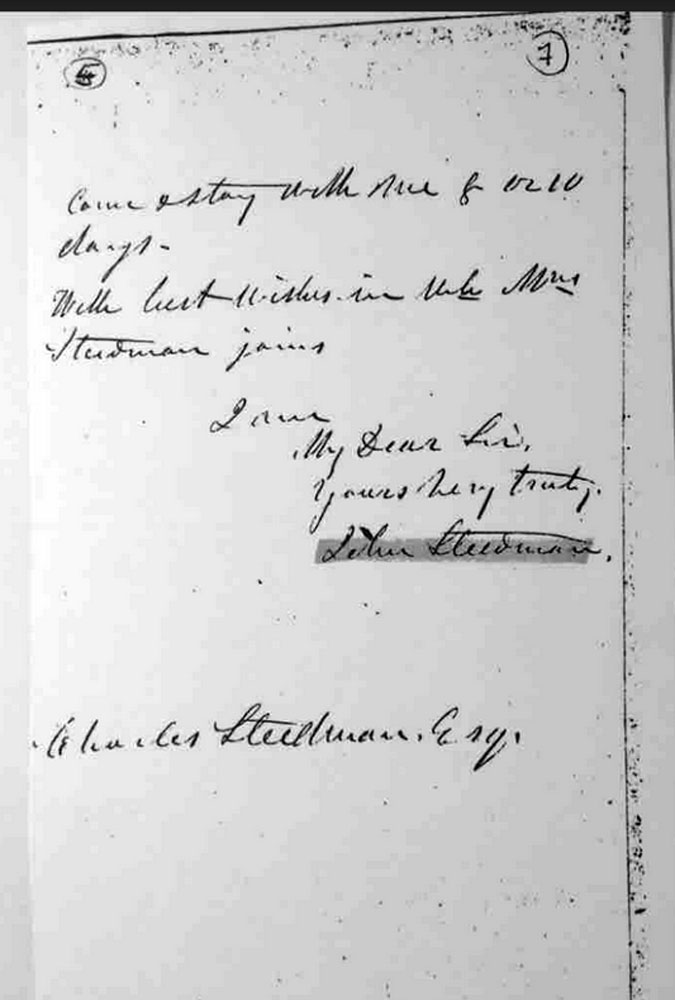 7
Come & stay with me 8 or 10
days -
With best wishes in wh: Mrs
Steedman joins
I am
My Dear Sir,
Yours very truly.
John Steedman.
Charles Steedman. Esq.